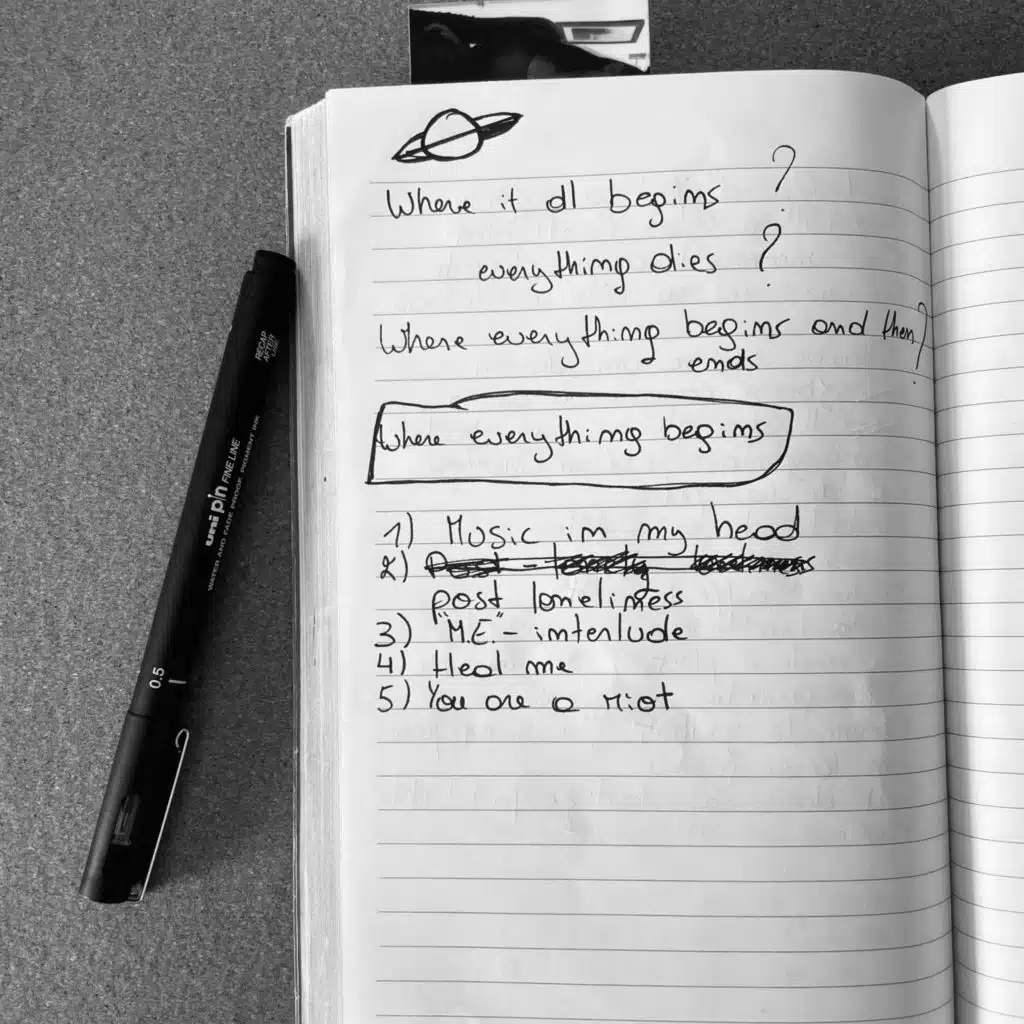 Where it all begins ?
everything dies ?
Where everything begins and then?
ends
Where everything begins
1) Music in my head
2)
post loneliness
3) "M.E." - interlude
4) Heal me
5) You are a riot
RECAP
AFTER
USE
uni pin FINE LINE
WATER AND FADE PROOF, PIGMENT INK
0.5